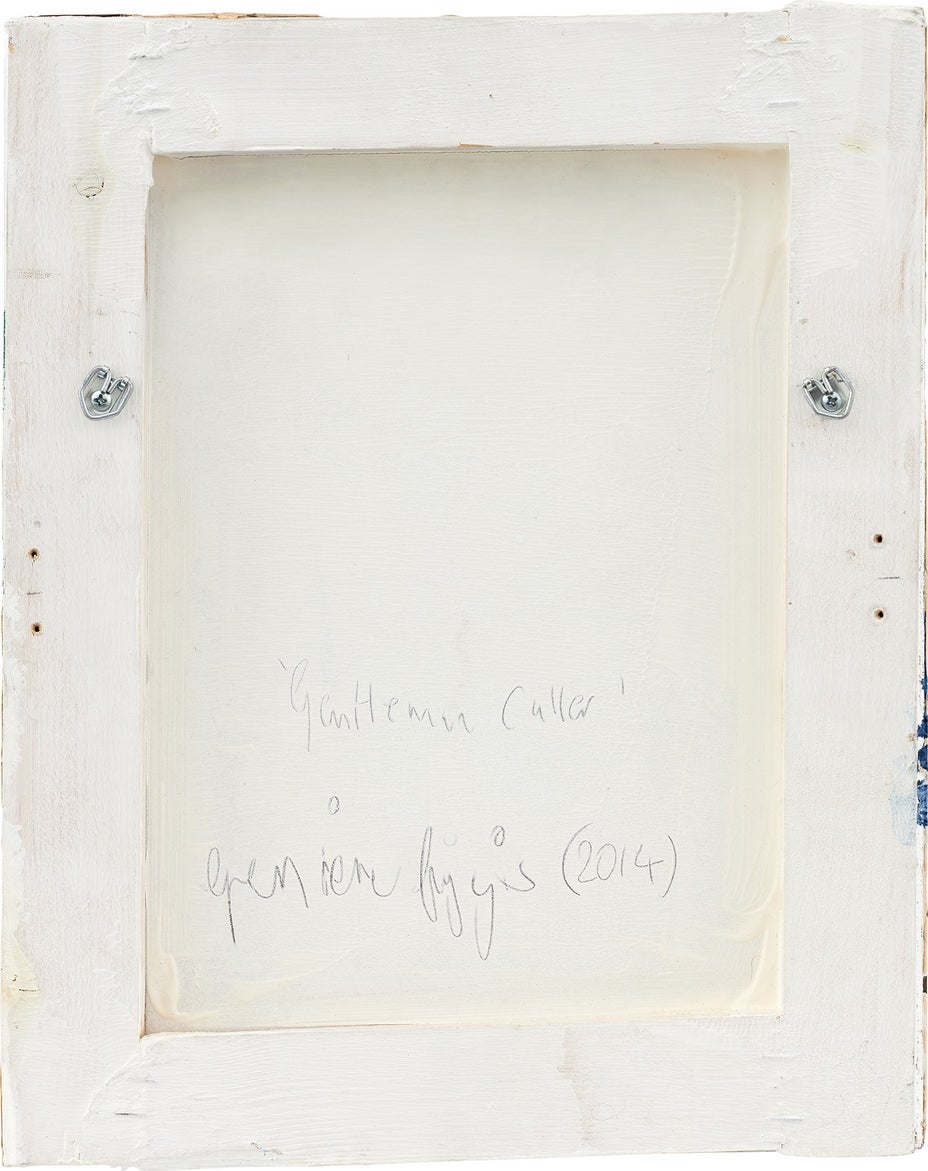 'Gentleman Caller'
genieve figgis (2014)